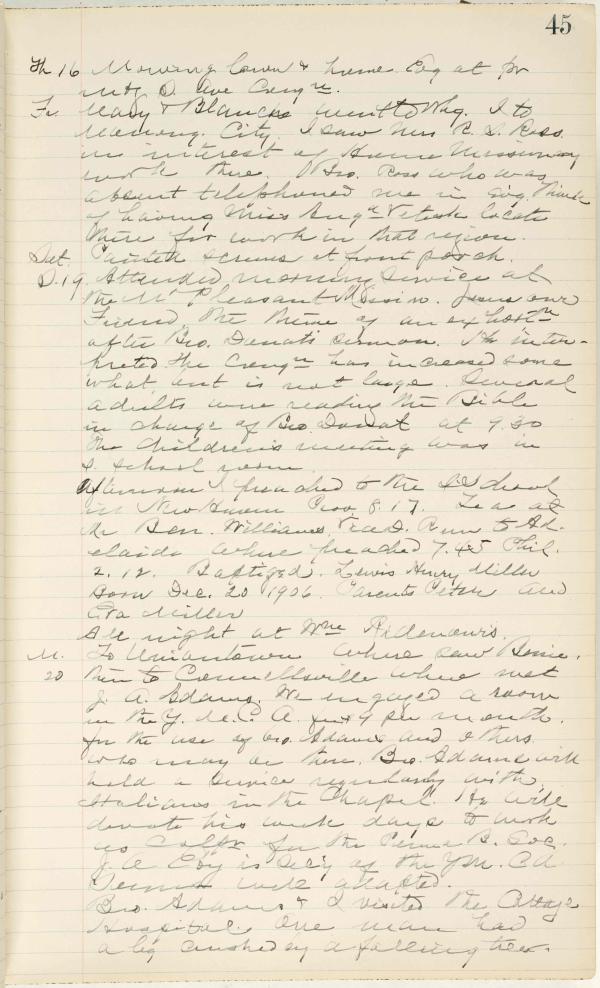 45
Th 16 Mowing lawn & home. Eve at pr
mtg D Ave Congn.
Fr. Mary & Blanche went to Whg. I to
Monong. City. I saw Mrs R. S. Ross
in interest of Home Missionary
work there. Bro. Ross who was
absent telephoned me in evg. Think
of having Miss locate
there for work in that region.
Sat. Painted screens at front porch.
S. 19 Attended morning service at
the Mt Pleasant Mission. Jesus our
Friend the theme of an exhortn
after Bro. Donat's sermon. inter-
preted. The Congn has increased some
what but is not large. Several
adults were reading the Bible
in charge of Bro. Donat at 9.30
The Children's meeting was in
S. School room.
Afternoon I preached to the S. School
in New Haven Prov. 8.17. Tea at
Mr Ben. Williams, Run to Ad-
elaide where preached 7.45 Phil.
2.12. Baptized. Lewis Henry Miller
Born Dec. 20 1906. Parents Peter and
Eva Miller
All night at Wm Ridenour's.
M. To Uniontown where saw
20 then to Connellsville where met
J. A. Adams. We engaged a room
in the Y. M. C. A. for $9 per month.
for the use of Bro. Adams and others
who may be there. Bro. Adams will
hold a service regularly with
Italians in the Chapel. He will
devote his week days to work
as Colptr for the Penna B. Soc.
J. A Eby is Sec'y of the YM. C A.
well adapted.
Bro. Adams & I visited the Cottage
Hospital. One man had
a leg crushed by a falling tree.